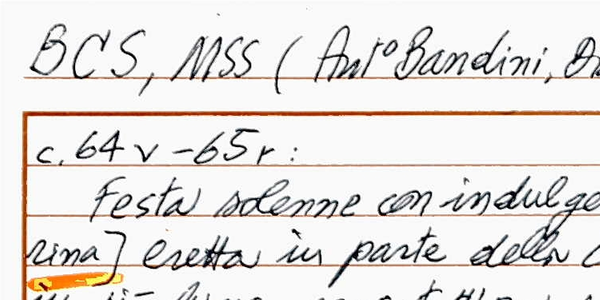 BCS, MSS (Antº Bandini, D
c. 64 v - 65 r :
Festa solenne con indulge
rina] eretta in parte della